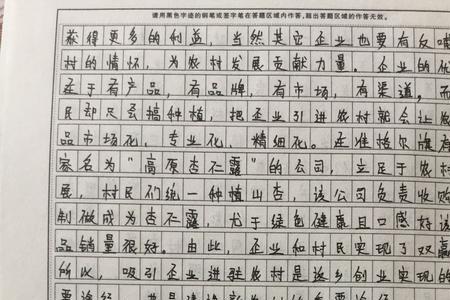 请用黑色字迹的钢笔或签字笔在答题区域内作答,超出答题区域的作答无效。
获得更多的利益,当然其它企业也要有反哺
村的情怀,为农村发展贡献力量。企业的优
在于有产品,有品牌,有市场,有渠道,而
民却只会搞种植,把企业引进农村就会让农
品市场化,专业化,精细化。在准格尔旗有
家名为“高原杏仁露”的公司,立足于农村
展,村民们统一种植山杏,该公司负责收购
制做成为杏仁露,尤于绿色健康且口感好该
品销量很好。由此,企业和村民实现了双赢
所以,吸引企业进驻农村是该乡创业实现的
要途径